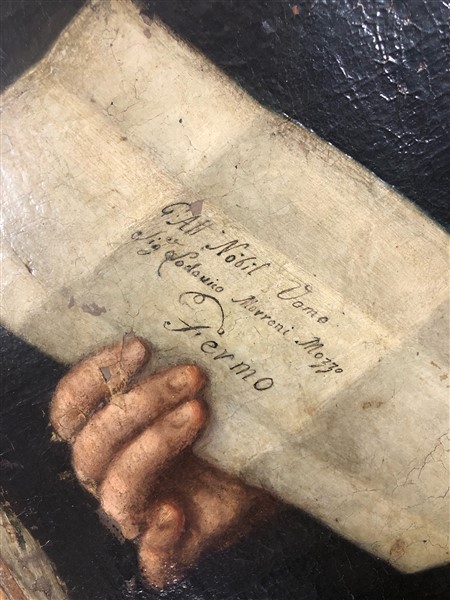 All Nobil Uomo
Sig.r Lodovico Morroni Mozzo
Fermo